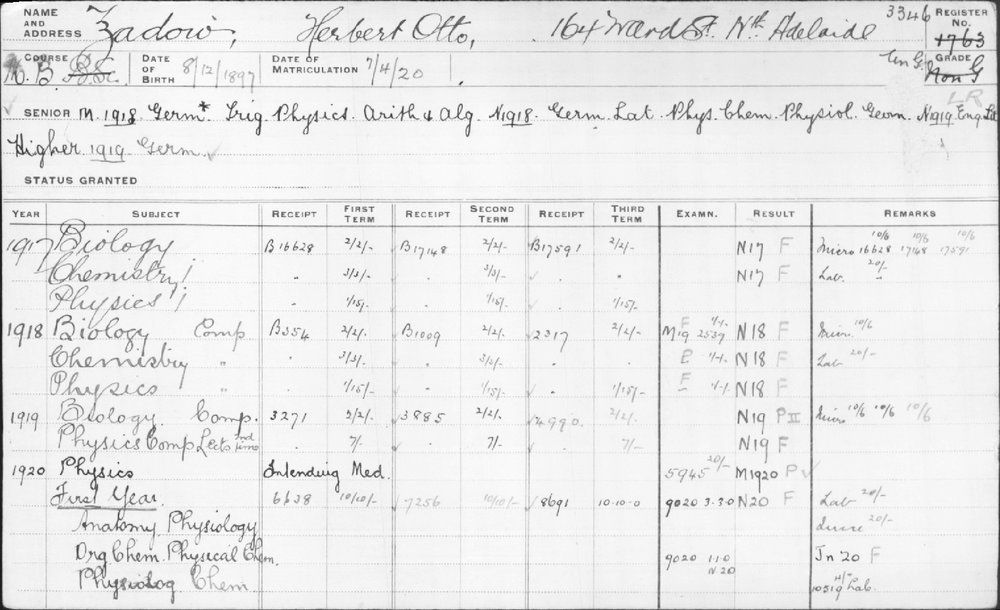 NAME AND ADDRESS Zadow, Herbert Otto, 164 Ward St. Nth Adelaide 3346 REGISTER No. 1763
COURSE M.B. B.Sc. DATE OF BIRTH 8/12/1897 DATE OF MATRICULATION 7/4/20. GRADE Non G
LR
SENIOR M. 1918. Germ* Trig Physics. Arith & Alg. N1918. Germ. Lat. Phys. Chem. Physiol. Geom. N1919 Eng. Lit
Higher 1919. Germ.
STATUS GRANTED
YEAR SUBJECT RECEIPT FIRST TERM RECEIPT SECOND TERM RECEIPT THIRD TERM EXAMN. RESULT REMARKS
1917 Biology B16628 2/2/- B17148 2/2/- B17591 2/2/- N17 F Micro 10/6 16628 10/6 17148 10/6 17591
Chemistry I " 3/3/- 3/3/- N17 F Lab. 20/-
Physics I " 1/15/- " 1/15/- " 1/15/-
1918 Biology Comp B354 2/2/- B1009 2/2/- 2317 2/2/- M19 F 1/1/- 2537 N18 F Micro. 10/6
Chemistry " 3/3/- 3/3/- 1/1/- N18 F Lab 20/-
Physics " 1/15/- 1/15/- 1/15/- F 1/1/- N18 F
1919 Biology Comp. 3271 2/2/- 3885 2/2/- 4990. 2/2/- N19 P II Micro 10/6 10/6 10/6
Physics Comp Lects 2nd time 7/- 7/- 7/- N19 F
1920 Physics Intending Med. 5945 20/- M1920 P
First Year. 6638 10/10/- 7256 10/10/- 8691 10.10.0 9020 3.3.0 N20 F Lab 20/-
Anatomy Physiology 20/-
Org Chem. Physical Chem. 9020 1.1.0 N.20 Jn 20 F
Chem 10519 Lab.